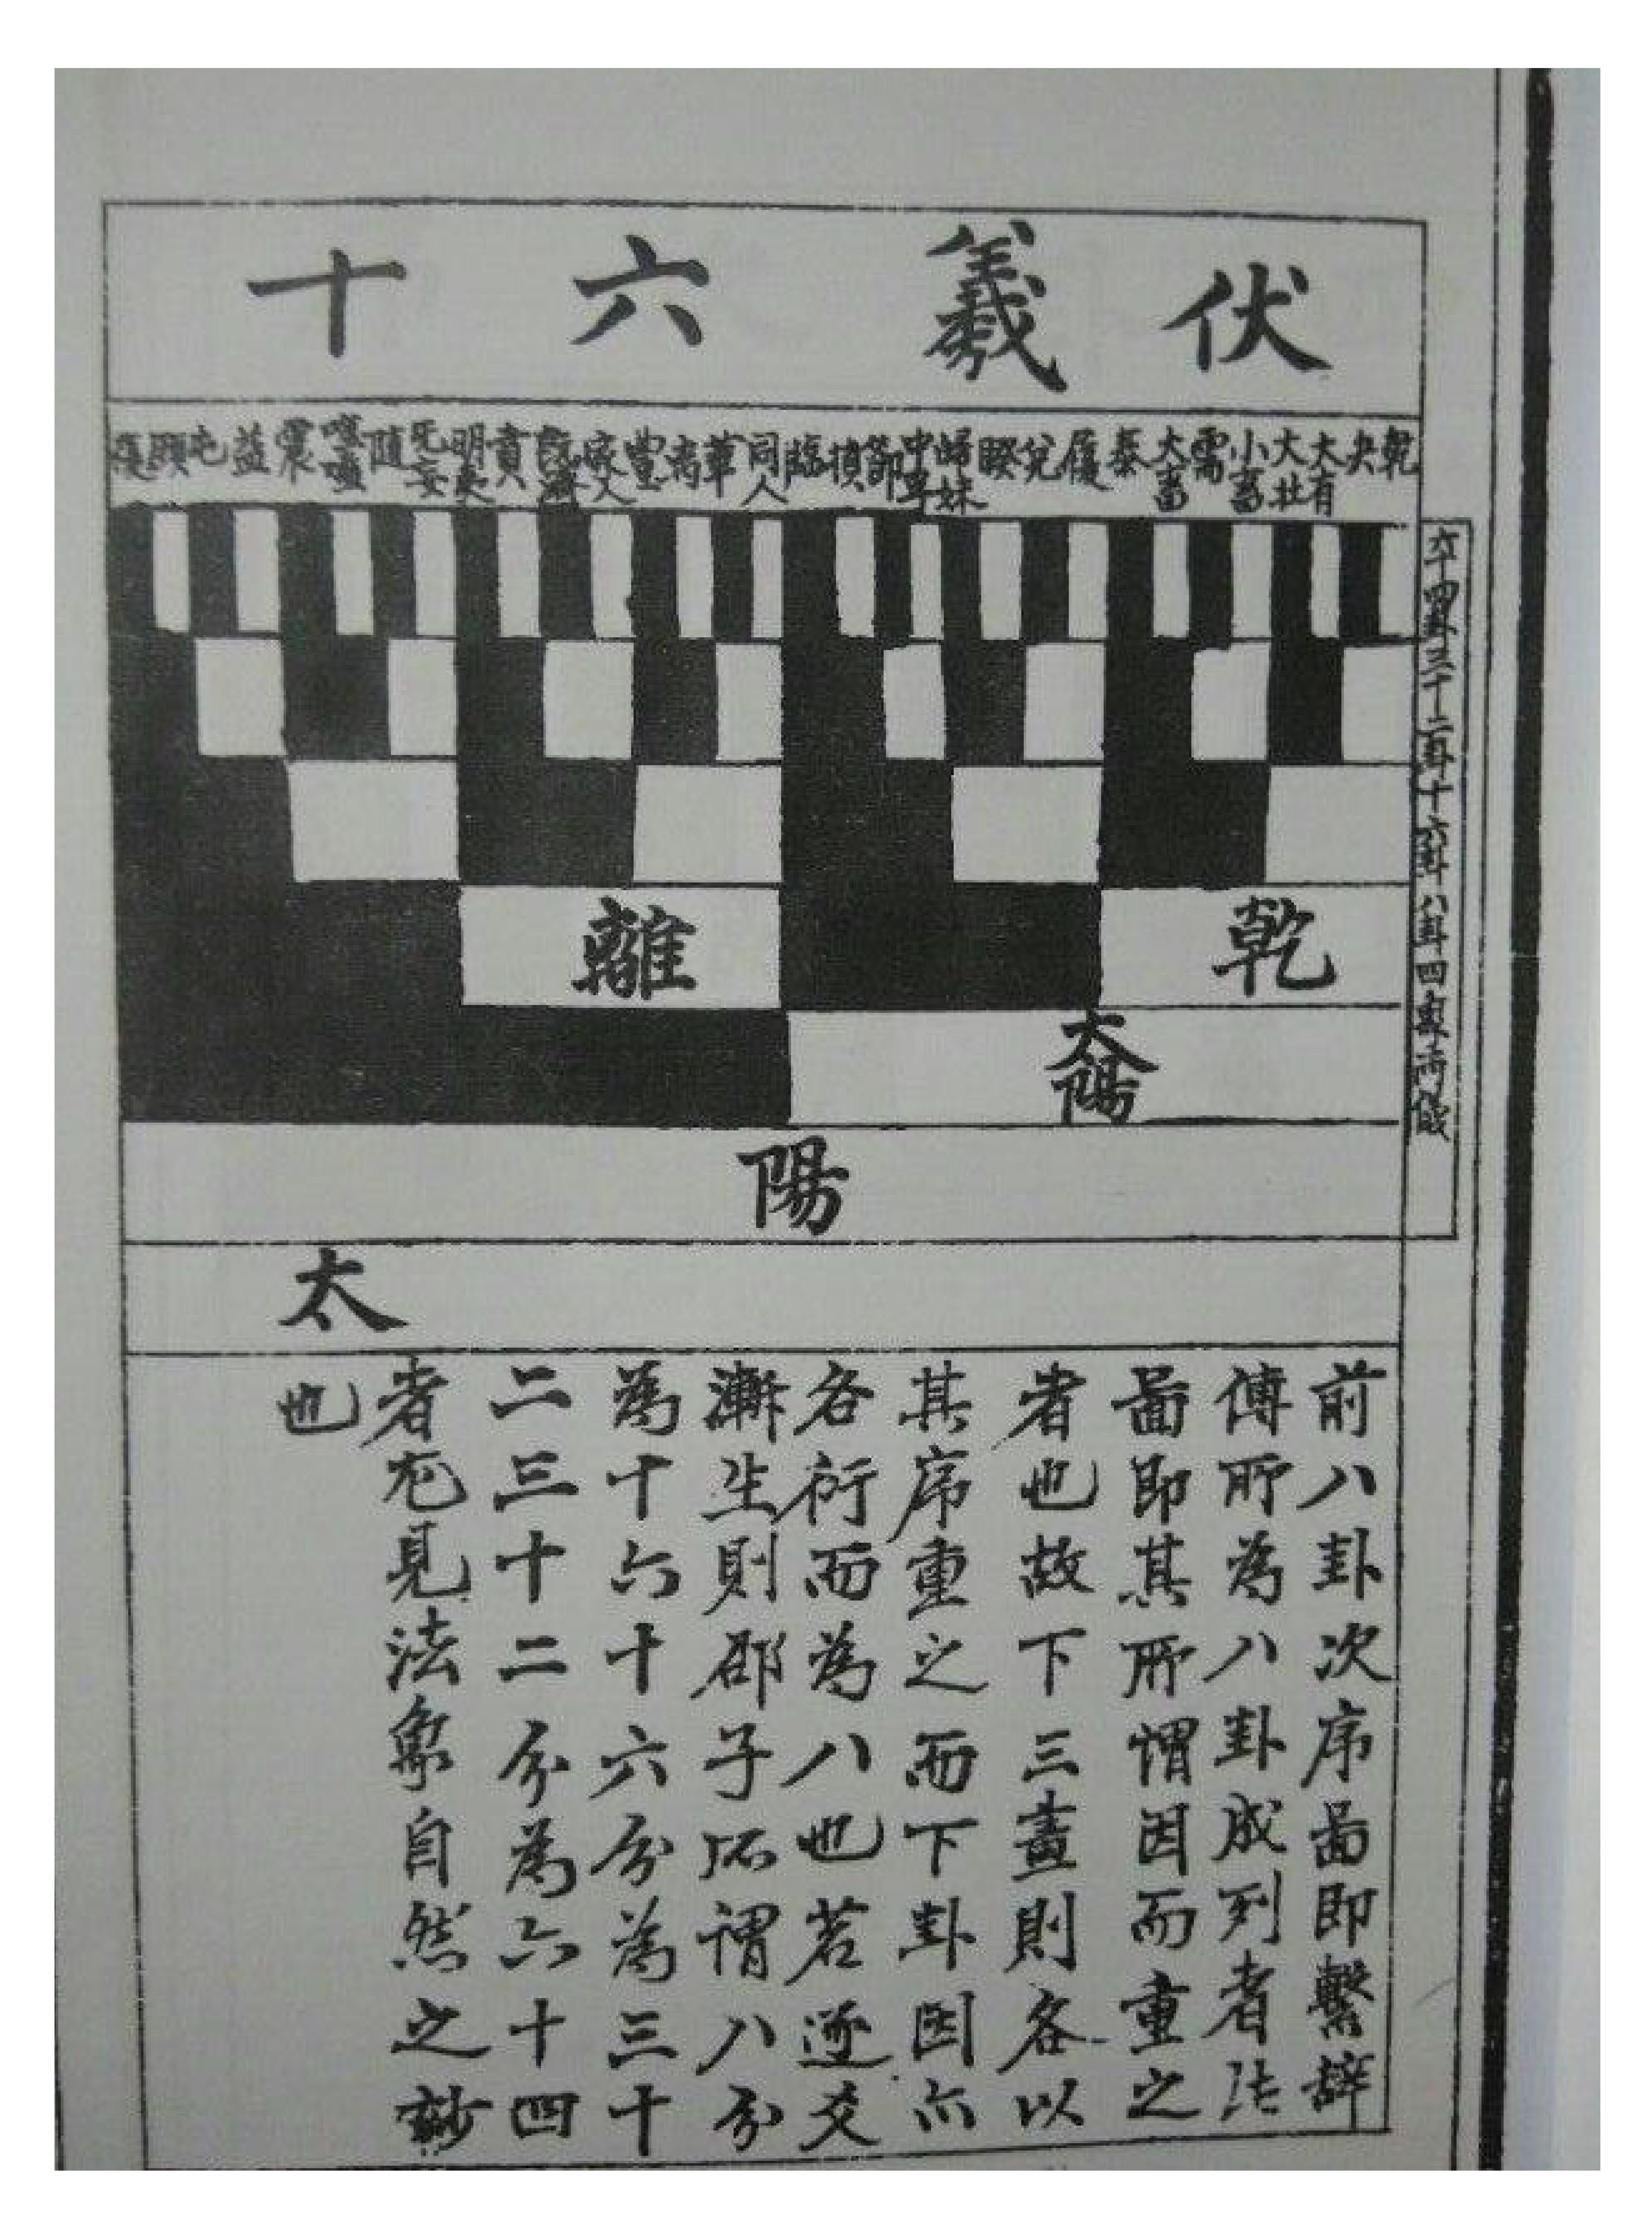 伏羲六十
乾
夬
大有
大壯
小畜
需
大畜
泰
履
兌
睽
歸妹
中孚
節
損
臨
同人
革
离
豐
家人
既濟
賁
明夷
无妄
随
噬嗑
震
益
屯
頤
復
六十四卦三十二卦十六卦八卦四象兩儀
乾
離
太陽
陽
太
前八卦次序啚即繫辞
傅所為八卦成列者法
啚即其所謂因而重之
者也故下三畫則各以
其序重之而下卦因亦
各衍而為八也若逐爻
漸生則邵子所謂八分
為十六十六分為三十
二三十二分為六十四
者尤見法象自然之妙
也